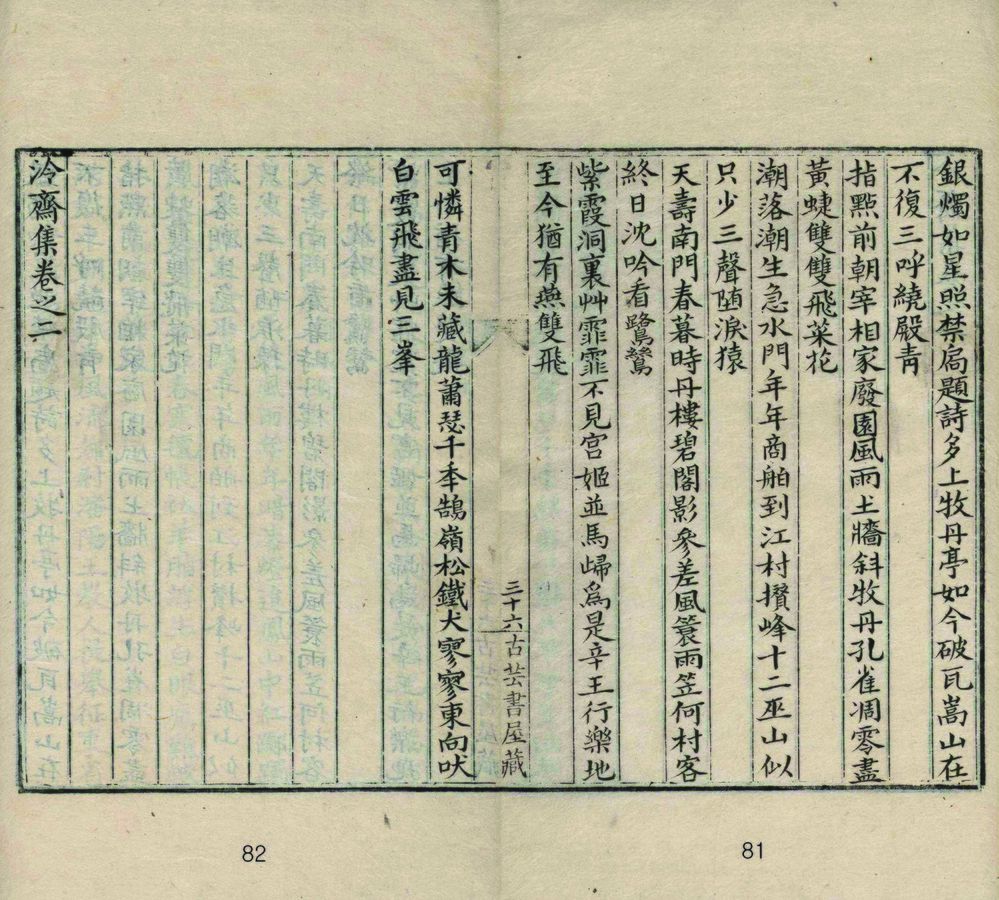 銀燭如星照禁扃題詩多上牧丹亭如今破瓦嵩山在
不復三呼繞殿青
指點前朝宰相家廢園風雨土牆斜牧丹孔雀凋零盡
黃蜨雙雙飛菜花
潮落潮生急水門年年商舶到江村攢峰十二巫山似
只少三聲墮淚猿
天壽南門春暮時丹樓碧閣影參差風簑雨笠何村客
終日沈吟看鷺鷥
紫霞洞裏艸霏霏不見宮姬並馬歸爲是辛王行樂地
至今猶有燕雙飛
三十六
古芸書屋藏
可憐青木未藏龍蕭瑟千秊鵠嶺松鐵犬寥寥東向吠
白雲飛盡見三峯
泠齋集卷之二
81
82